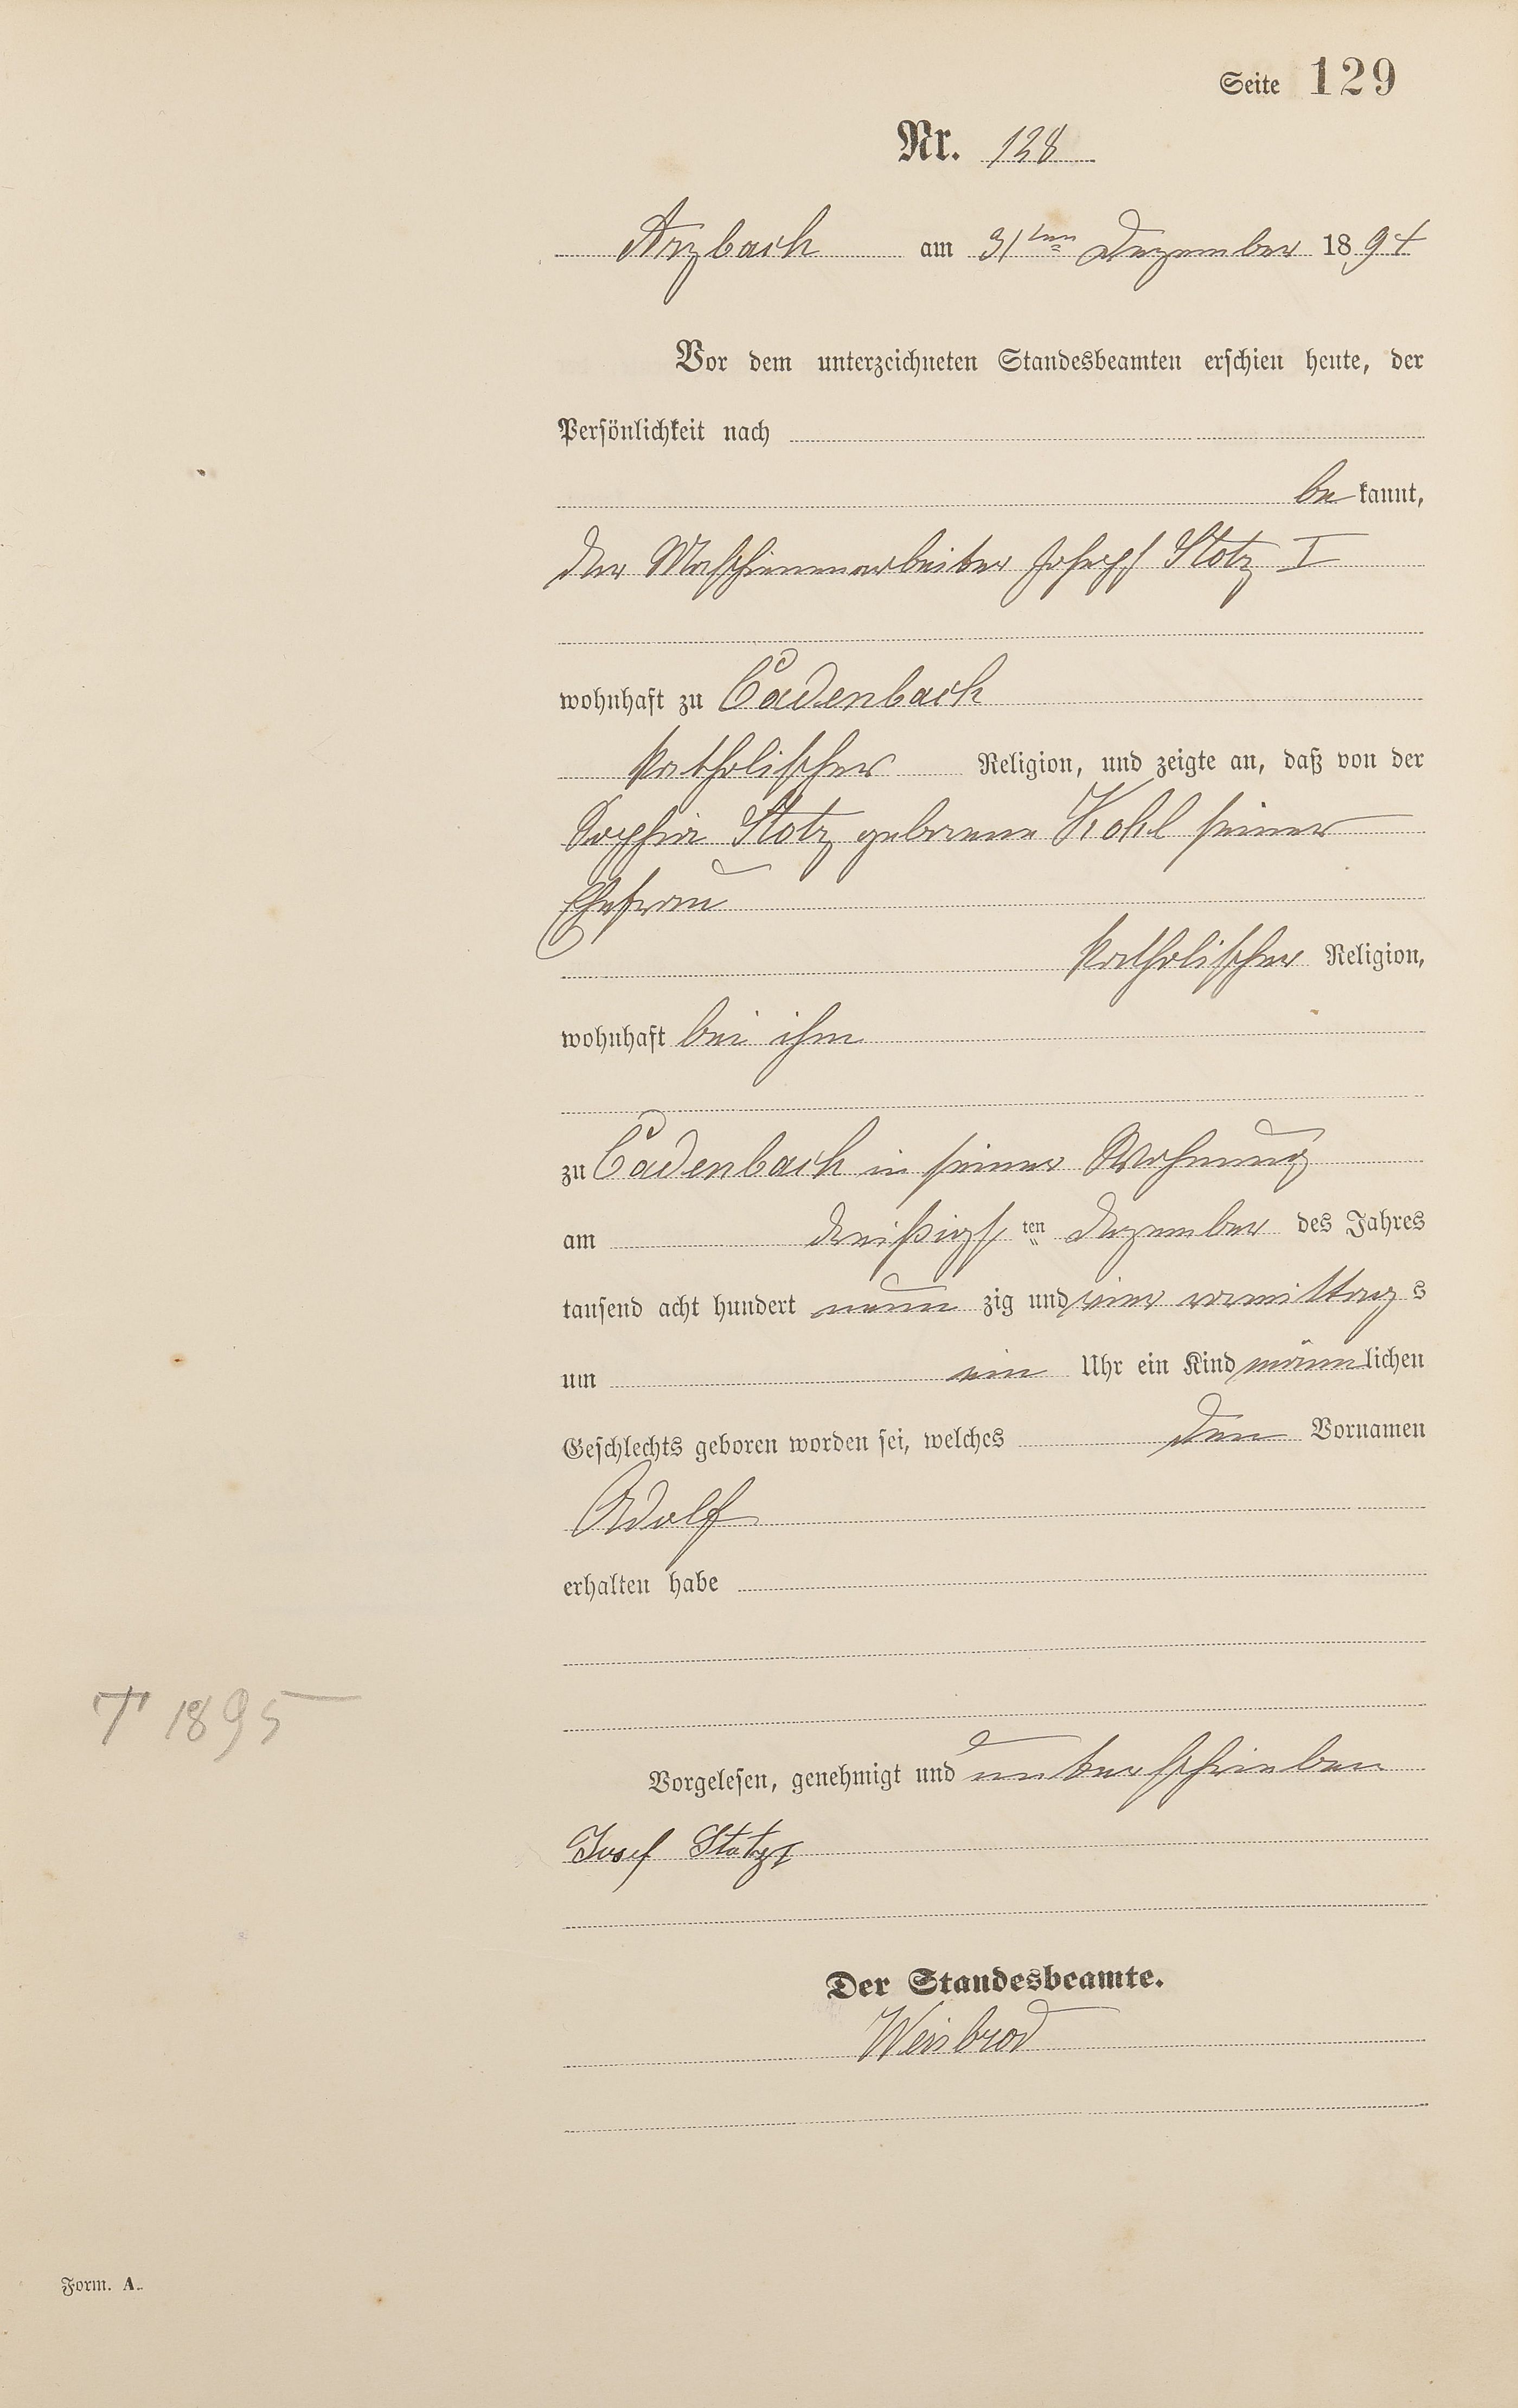 Seite 129
Nr. 128
Arzbach am 31ten Dezember 1894
Vor dem unterzeichneten Standesbeamten erschien heute, der
Persönlichkeit nach
be kannt,
der Maschinenarbeiter Joseph Stotz I
wohnhaft zu Cadenbach
katholischer Religion, und zeigte an, daß von der
Sophia Stotz geborene Kohl seiner
Ehefrau
katholischer Religion,
wohnhaft bei ihm
zu Cadenbach in seiner Wohnung
am dreißigsten Dezember des Jahres
tausend acht hundert neun zig und vier vormittags
um ein Uhr ein Kind männlichen
Geschlechts geboren worden sei, welches den Vornamen
Adolf
erhalten habe
T 1895
Vorgelesen, genehmigt und unterschrieben
Josef Stotz I
Der Standesbeamte.
Weisbrod
Form. A.